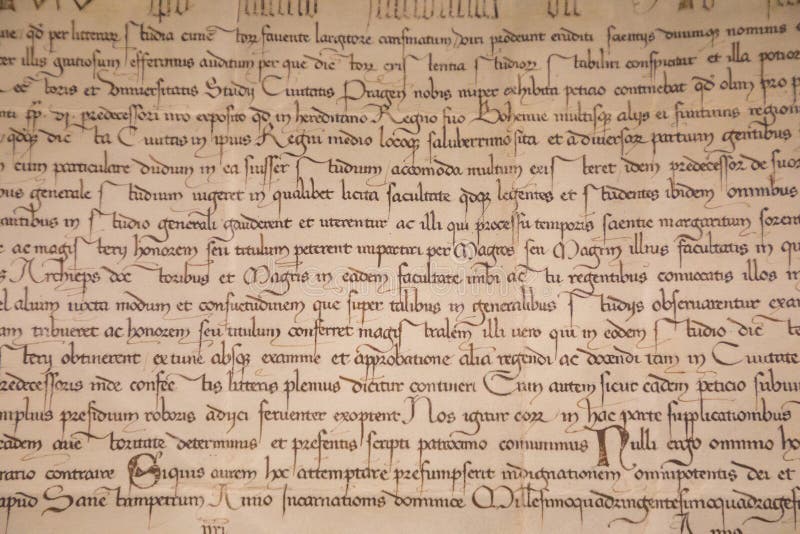 ne qd per litterar Studia cunc tor favente largitore carismatum viri prodeunt eruditi scientiis divinumque nominis
er illis gratiosum efferentes auditum per que dic tor exis tentia Studior Stabiliri conspicitur et illa potior
Rec toris et Universitatis Studii Civitatis Pragen nobis nuper exhibita peticio continebat qd olim pro p
nti pp. vi. predecessori nro exposito qd in hereditario Regno suo Bohemie multisque aliis ei finitimis region
qdque dic ta Civitas in ipius Regni medio locoque saluberrimo sita et a diversar partium gentibus
m cum particulare dudum in ea fuisset Studium accomoda multum exis teret idem predecessor de suor
bus generale Studium vigeret in qualibet licita facultate qdque legentes et Studentes ibidem omnibus
antibus in Studio generali gauderent et uterentur ac illi qui processu temporis scientie margaritam forent
r ac magis terij honorem seu titulum peterent impartiri per Magros seu Magrm illius facultatis in qu
s Archieps doc toribus et Magris in eadem facultate inibi ac tu regentibus convocatis illos in
el alium iuxta modum et consuetudinem que super talibus in generalibus Studijs observarentur exa
am tribueret ac honorem seu titulum conferret magis tralem illi vero qui in eodem Studio dic t
s terij obtinerent ex tunc absque examine et approbatione alia regendi ac docendi tam in Civitate
redecessoris inde confec tis litteris plenius dicitur contineri Cum autem sicut eadem peticio subiu
mplius presidium roboris adiici ferventer exoptent Nos igitur eorr in hac parte supplicationibus
eadem auc toritate determinus et presentis scripti patrocinio comunimus Nulli ergo omnino ho
rario contraire Siquis autem hoc attemptare presumpserit indignationem omnipotentis dei et
apud Sanctum petrum Anno Incarnationis dominice Millesimoquadringentesimoquadrages
iiri